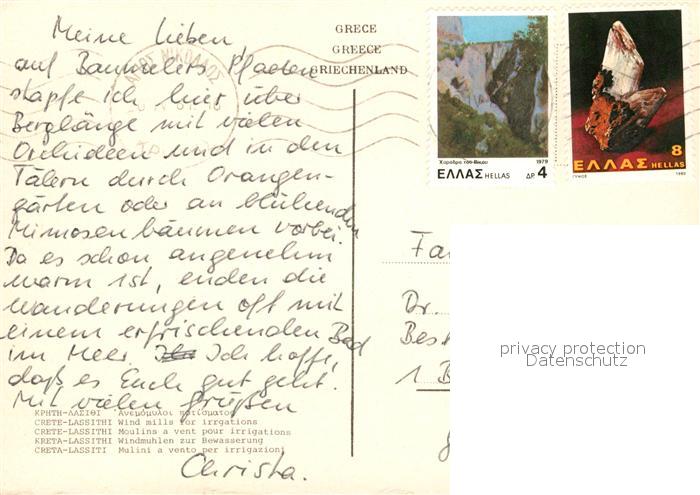 Meine Lieben,
auf Baumelers Pfaden
stapfe ich hier über
Berghänge mit vielen
Orchideen und in den
Tälern durch Orangen-
gärten oder an blühenden
Mimosenbäumen vorbei.
Da es schon angenehm
warm ist, enden die
Wanderungen oft mit
einem erfrischenden Bad
im Meer. Ich hoffe,
daß es Euch gut geht.
Mit vielen Grüßen
Christa.
GRECE
GREECE
GRIECHENLAND
ΚΡΗΤΗ-ΛΑΣΙΘΙ Ἀνεμόμυλοι ποτίσματος
CRETE-LASSITHI Wind mills for irrgations
CRETE-LASSITHI Moulins a vent pour irrigations
KRETA-LASSITHI Windmuhlen zur Bewasserung
CRETA-LASSITI Mulini a vento per irrigazioni
Χαράδρα του Βίκου 1979
ΕΛΛΑΣ HELLAS ΔΡ. 4
8
ΕΛΛΑΣ HELLAS
ΓΥΨΟΣ 1980
Fa
Dr.
Best
1 B
privacy protection
Datenschutz